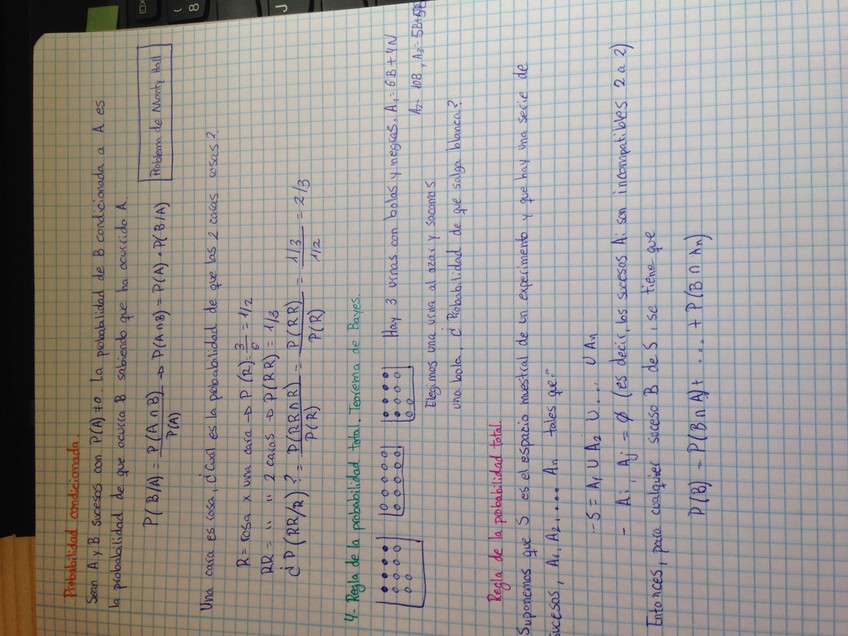 Probabilidad condicionada
Sean A y B sucesos con P(A)≠0 La probabilidad de B condicionada a A es
la probabilidad de que ocurra B sabiendo que ha ocurrido A.
P(B/A) = P(A∩B)/P(A) → P(A∩B) = P(A)·P(B/A)
Problema de Monty Hall
Una cara es rosa, ¿Cuál es la probabilidad de que las 2 caras rosas?
R = rosa x una cara → P(R) = 3/6 = 1/2
RR = " " 2 caras → P(RR) = 1/3
¿P(RR/R)? = P(RR∩R)/P(R) = P(RR)/P(R) = 1/3 / 1/2 = 2/3
4- Regla de la probabilidad total. Teorema de Bayes.
Hay 3 urnas con bolas y negras. A₁=6B+4N
A₂=10B, A₃=5B+
Elegimos una urna al azar y sacamos
una bola, ¿Probabilidad de que salga blanca?
Regla de la probabilidad total.
Suponemos que S es el espacio muestral de un experimento y que hay una serie de
sucesos, A₁, A₂, ... Aₙ tales que:
- S = A₁ ∪ A₂ ∪ ... ∪ Aₙ
- Ai, Aj = ∅ (es decir, los sucesos Ai son incompatibles 2 a 2)
Entonces, para cualquier suceso B de S, se tiene que
P(B) = P(B∩A)+ ... + P(B∩Aₙ)